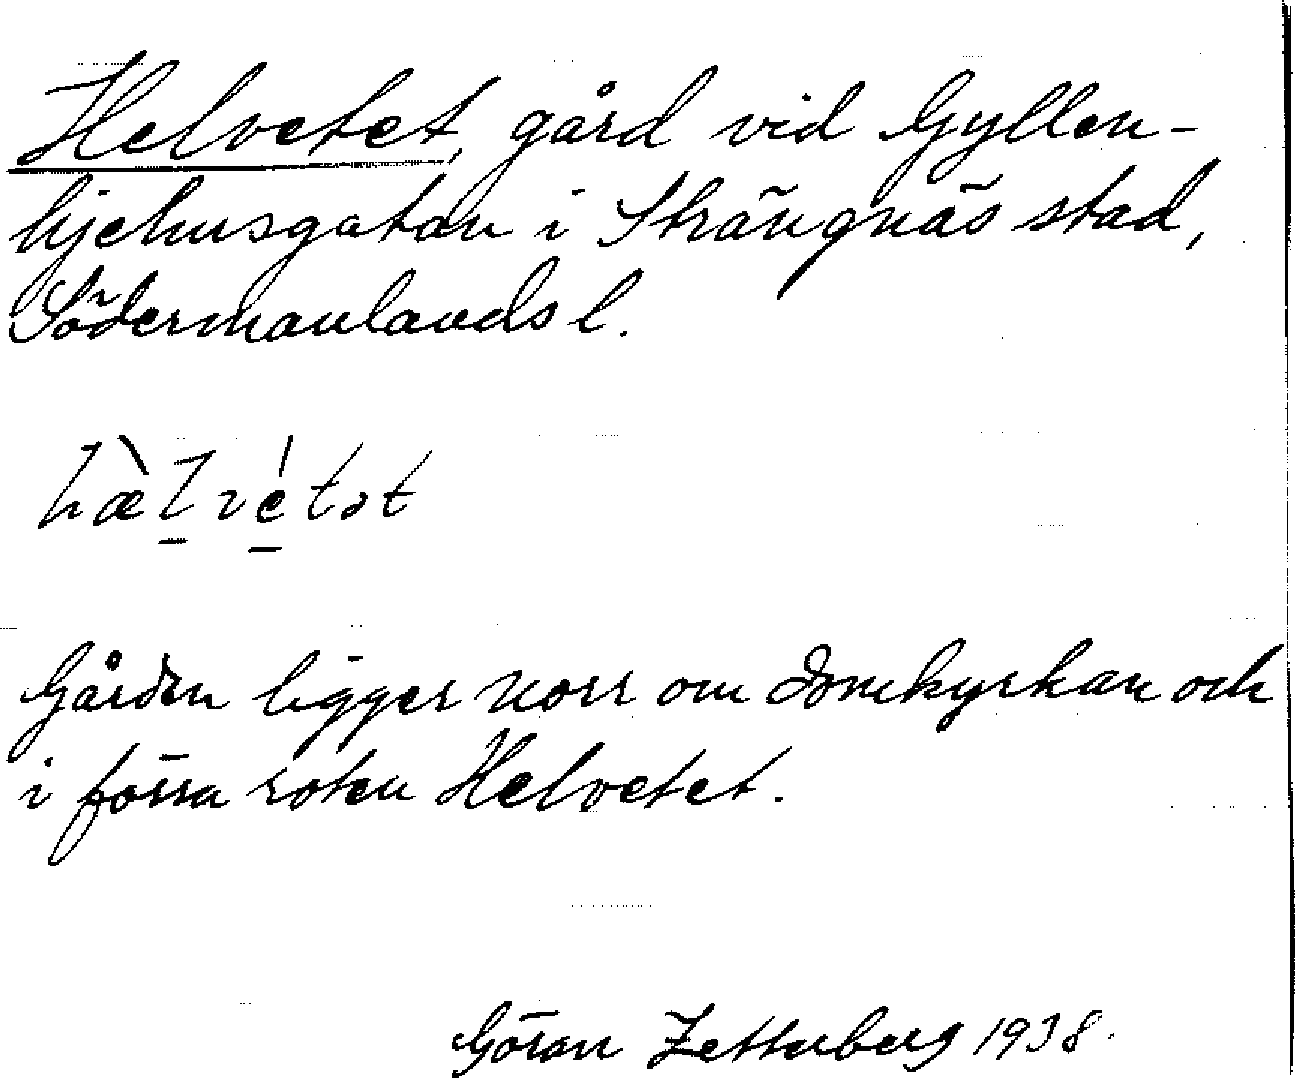 Helvetet, gård vid Gyllen-
hjelmsgatan i Strängnäs stad,
Södermanlands l.
hæ̀lvétət
Gården ligger norr om domkyrkan och
i förra roten Helvetet.
Göran Zetterberg 1938.